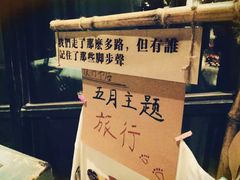 我們走了那麼多路，但有誰
記住了那些脚步聲
五月主題
旅行